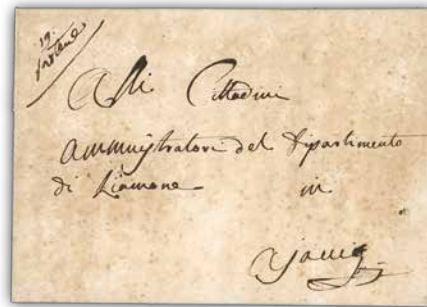 19.
Alli Cittadini
Amministratori del Dipartimento
di Liamone in
Ajaccio